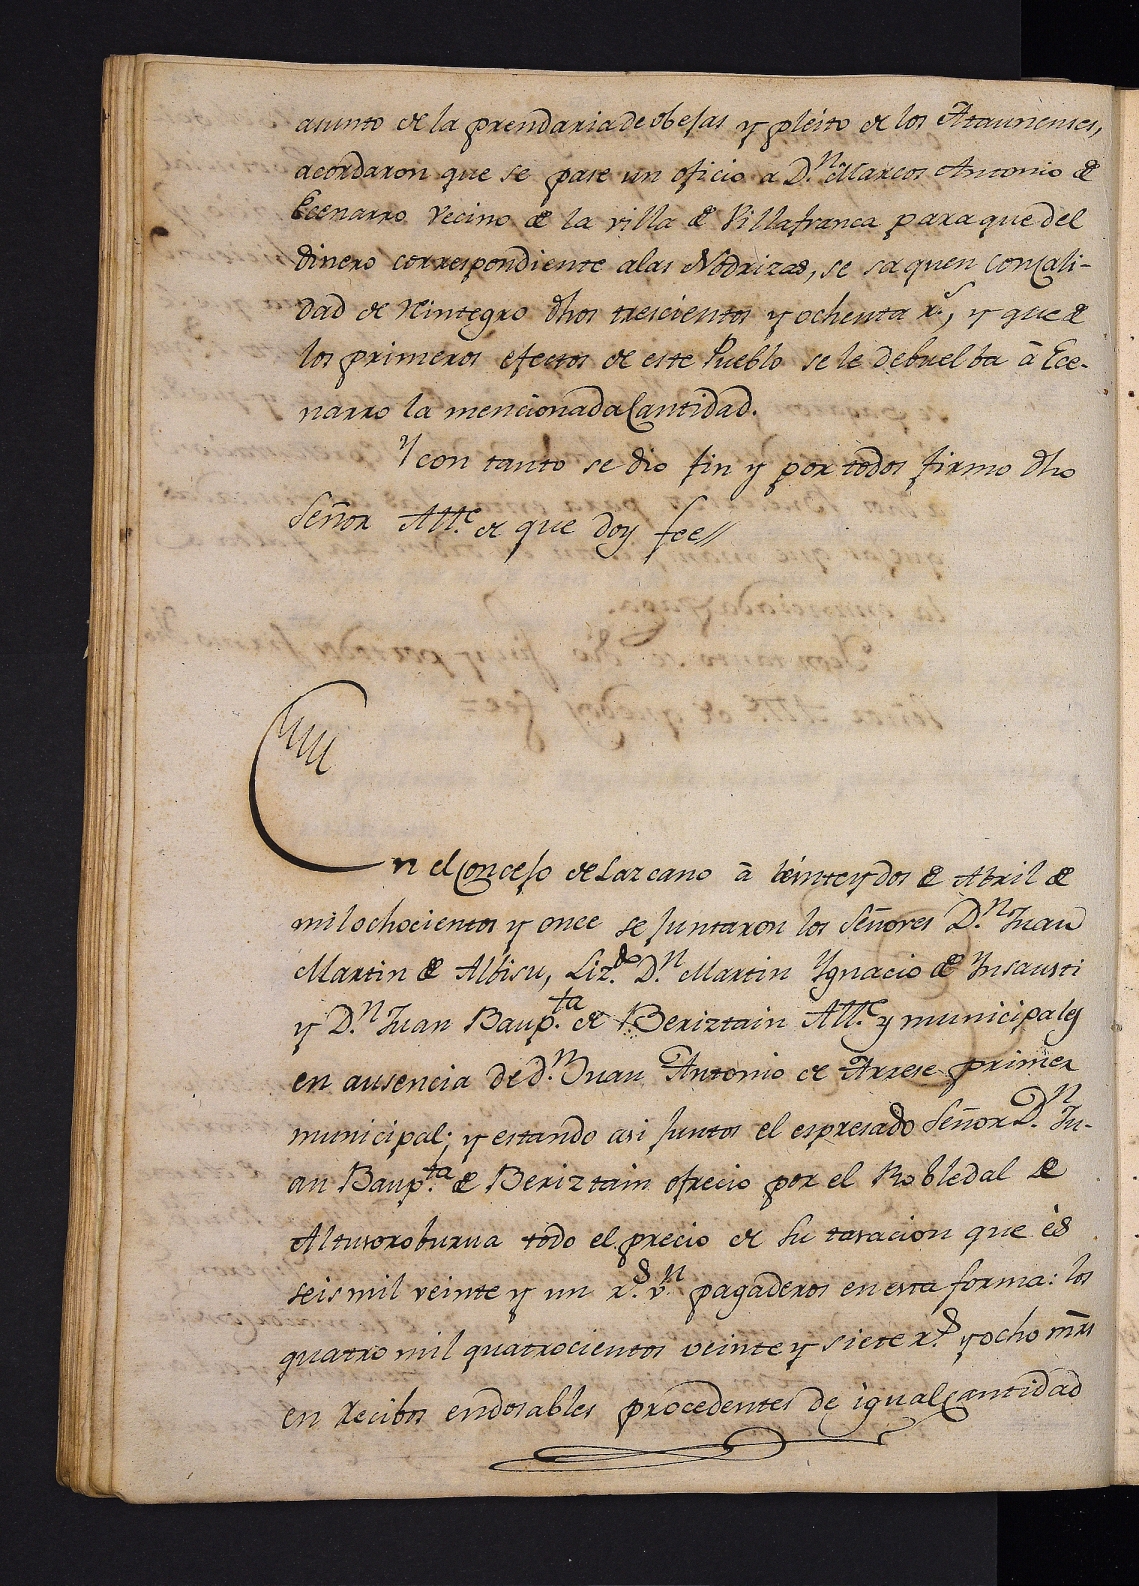 asunto de la prendaria de obejas y pleito de los Ataunenses,
acordaron que se pase un oficio a D.n Marcos Antonio de
Ecenarro vecino de la villa de Villafranca para que del
dinero correspondiente a las Nodrizas, se saquen con cali-
dad de reintegro dhos trescientos y ochenta r.s, y que de
los primeros efectos de este Pueblo se le debuelba â Ece-
narro la mencionada Cantidad.
Y con tanto se dio fin y por todos firmo dho
Señor All.e de que doy fee//
En el Concejo de Lazcano â beinte y dos de Abril de
mil ochocientos y once se juntaron los Señores D.n Juan
Martin de Albisu, Liz.do D.n Martin Ygnacio de Ynsausti
y D.n Juan Baup.ta de Beriztain All.e y municipales
en ausencia de d.n Juan Antonio de Arrese primer
municipal; y estando asi juntos el espresado Señor D.n Ju-
an Baup.ta de Beriztain ofrecio por el Robledal de
Altusoroburua todo el precio de su tasacion que ès
seis mil veinte y un r.s v.n pagaderos en esta forma: los
quatro mil quatrocientos veinte y siete r.s y ocho mrs
en recibos endosables procedentes de igual cantidad